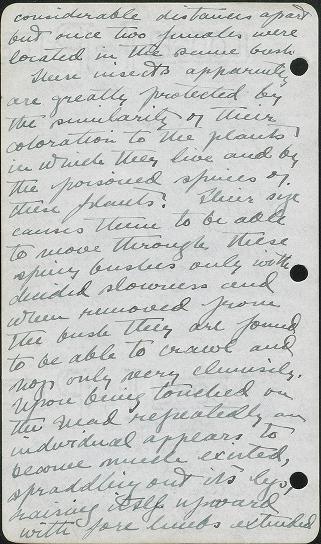 considerable distances apart
but once two females were
located in the same bush.
These insects apparently
are greatly protected by
the similarity of their
coloration to the plants
in which they live and by
the poisoned spines of
these plants. Their size
causes them to be able
to move through these
spiny bushes only with
decided slowness and
when removed from
the bush they are found
to be able to crawl and
hop only very clumsily.
Upon being touched on
the head repeatedly an
individual appears to
become much excited,
spraddling out its legs,
raising itself upward
with fore limbs extended